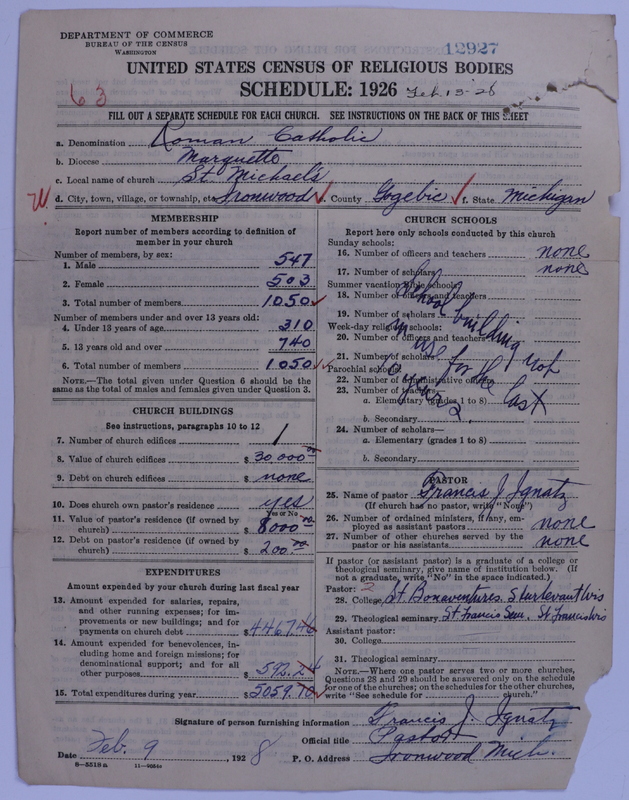 DEPARTMENT OF COMMERCE
BUREAU OF THE CENSUS
WASHINGTON
12927
UNITED STATES CENSUS OF RELIGIOUS BODIES
63
SCHEDULE: 1926 Feb 13-28
FILL OUT A SEPARATE SCHEDULE FOR EACH CHURCH. SEE INSTRUCTIONS ON THE BACK OF THIS SHEET
a. Denomination Roman Catholic
b. Diocese Marquette
c. Local name of church St. Michael's
d. City, town, village, or township, etc Ironwood e. County Gogebic f. State Michigan
MEMBERSHIP
Report number of members according to definition of
member in your church
Number of members, by sex:
1. Male 547
2. Female 503
3. Total number of members 1050
Number of members under and over 13 years old:
4. Under 13 years of age 310
5. 13 years old and over 740
6. Total number of members 1050
NOTE.—The total given under Question 6 should be the
same as the total of males and females given under Question 3.
CHURCH BUILDINGS
See instructions, paragraphs 10 to 12
7. Number of church edifices 1
8. Value of church edifices $ 30,000.00
9. Debt on church edifices $ none
10. Does church own pastor's residence yes
Yes or No
11. Value of pastor's residence (if owned by
church) $ 8000.00
12. Debt on pastor's residence (if owned by
church) $ 200.00
EXPENDITURES
Amount expended by your church during last fiscal year
13. Amount expended for salaries, repairs,
and other running expenses; for im-
provements or new buildings; and for
payments on church debt $ 4467.46
14. Amount expended for benevolences, in-
cluding home and foreign missions; for
denominational support; and for all
other purposes $ 592.24
15. Total expenditures during year $ 5059.70
CHURCH SCHOOLS
Report here only schools conducted by this church
Sunday schools:
16. Number of officers and teachers none
17. Number of scholars none
Summer vacation Bible schools:
18. Number of officers and teachers
19. Number of scholars
Week-day religious schools:
20. Number of officers and teachers
21. Number of scholars
Parochial schools:
22. Number of administrative officers
23. Number of teachers—
a. Elementary (grades 1 to 8)
b. Secondary
24. Number of scholars—
a. Elementary (grades 1 to 8)
b. Secondary
School building not
in use for the last
years
PASTOR
25. Name of pastor Francis J. Ignatz
(If church has no pastor, write "None")
26. Number of ordained ministers, if any, em-
ployed as assistant pastors none
27. Number of other churches served by the
pastor or his assistants none
If pastor (or assistant pastor) is a graduate of a college or
theological seminary, give name of institution below. (If
not a graduate, write "No" in the space indicated.)
Pastor: 2
28. College St. Bonaventures. Sturtevant Wis
29. Theological seminary St Francis Sem. St. Francis Wis
Assistant pastor:
30. College
31. Theological seminary
NOTE.—Where one pastor serves two or more churches,
Questions 28 and 29 should be answered only on the schedule
for one of the churches; on the schedules for the other churches,
write "See schedule for church."
Signature of person furnishing information Francis J. Ignatz
Official title Pastor
Date Feb. 9, 1928 P. O. Address Ironwood Mich.
8-5518a 11-9084